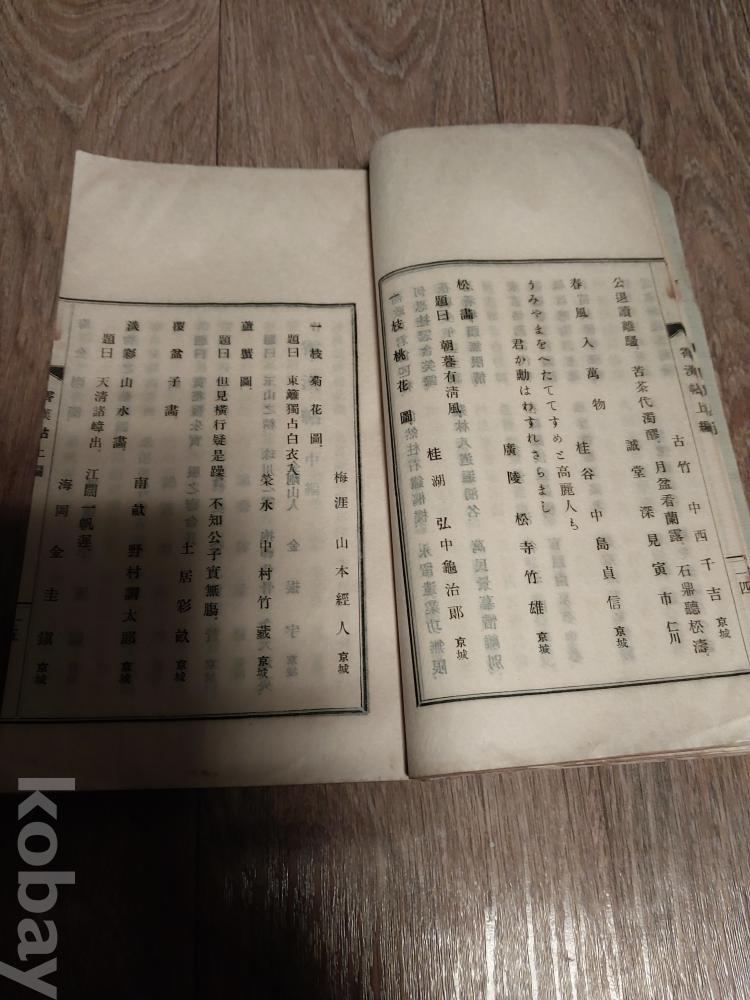 古竹 中西千吉 京城
公退讀離騷 苦茶代濁醪 月盆看蘭露 石鼎聽松濤
誠堂 深見寅市 仁川
春風入萬物 桂谷 中島貞信 京城
うみやまをへたててすめと高麗人も
君か勳はわすれさらまし
廣陵 松寺竹雄 京城
松畵
題曰 朝暮有淸風 桂湖 弘中龜治郎 京城
一枝桃花圖
梅涯 山本經人 京城
一枝菊花圖
題曰 東籬獨占白衣人
榮水 中村竹藏 京城
蘆蟹圖
題曰 但見橫行疑是躁 不知公子實無膓
覆盆子畵 土居彩畝 京城
淡彩山水畵 南畝 野村調太郎 京城
題曰 天淸諸嶂出 江闊一帆遲
海岡 金圭鎭 京城
kobay